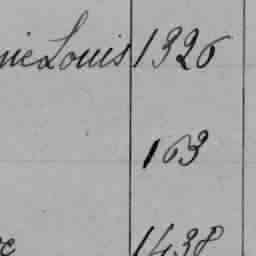 Louis 1326
163
1438